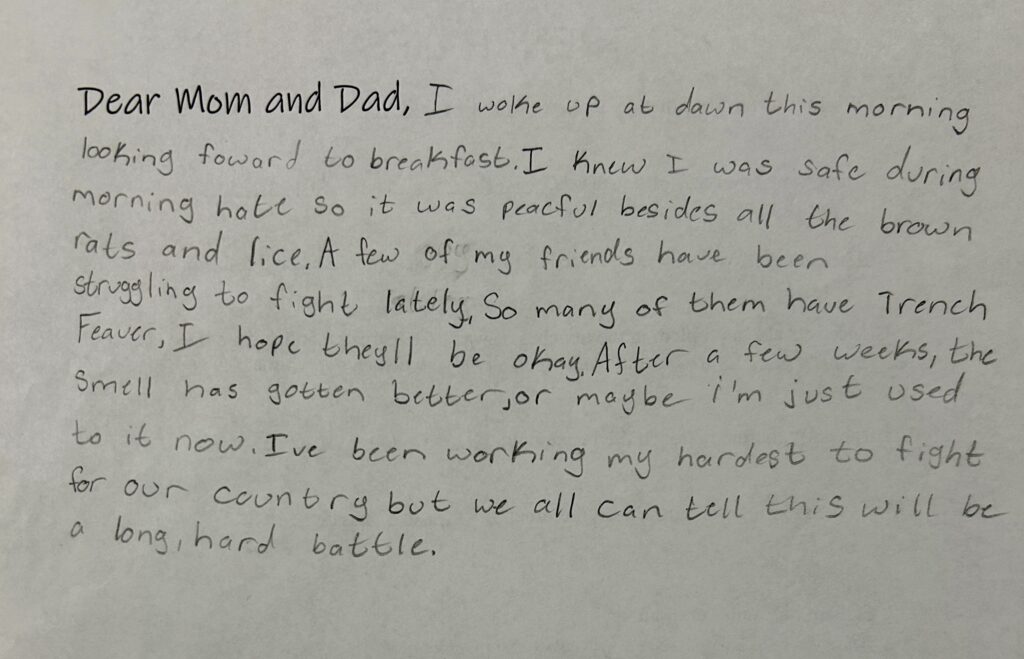 Dear Mom and Dad, I woke up at dawn this morning
looking foward to breakfast. I knew I was safe during
morning hate so it was peacful besides all the brown
rats and lice. A few of my friends have been
struggling to fight lately, So many of them have Trench
Feaver, I hope theyll be okay. After a few weeks, the
smell has gotten better, or maybe i'm just used
to it now. Ive been working my hardest to fight
for our country but we all can tell this will be
a long, hard battle.